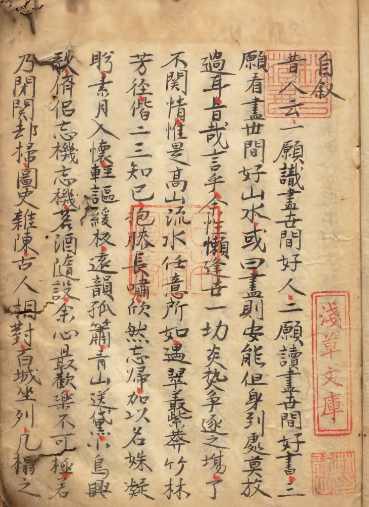 自叙
昔人云一願識盡世間好人二願讀盡世間好書三
願看盡世間好山水或曰盡則安能但身到處莫放
過耳旨哉言乎余性懶逢世一切炎熱爭逐之場了
不関情惟是高山流水任意所如遇翠叢紫莽竹林
芳徑偕二三知己抱膝長嘯欣然忘歸加以名姝凝
盻素月入懷輕謳緩板遠韻孤簫青山送黛小鳥興
歌儕侶忘機忘機茗酒隨設余心最歡樂不可極若
乃閉関却掃圖史雜陳古人相對百城坐列几榻之
淺草文庫